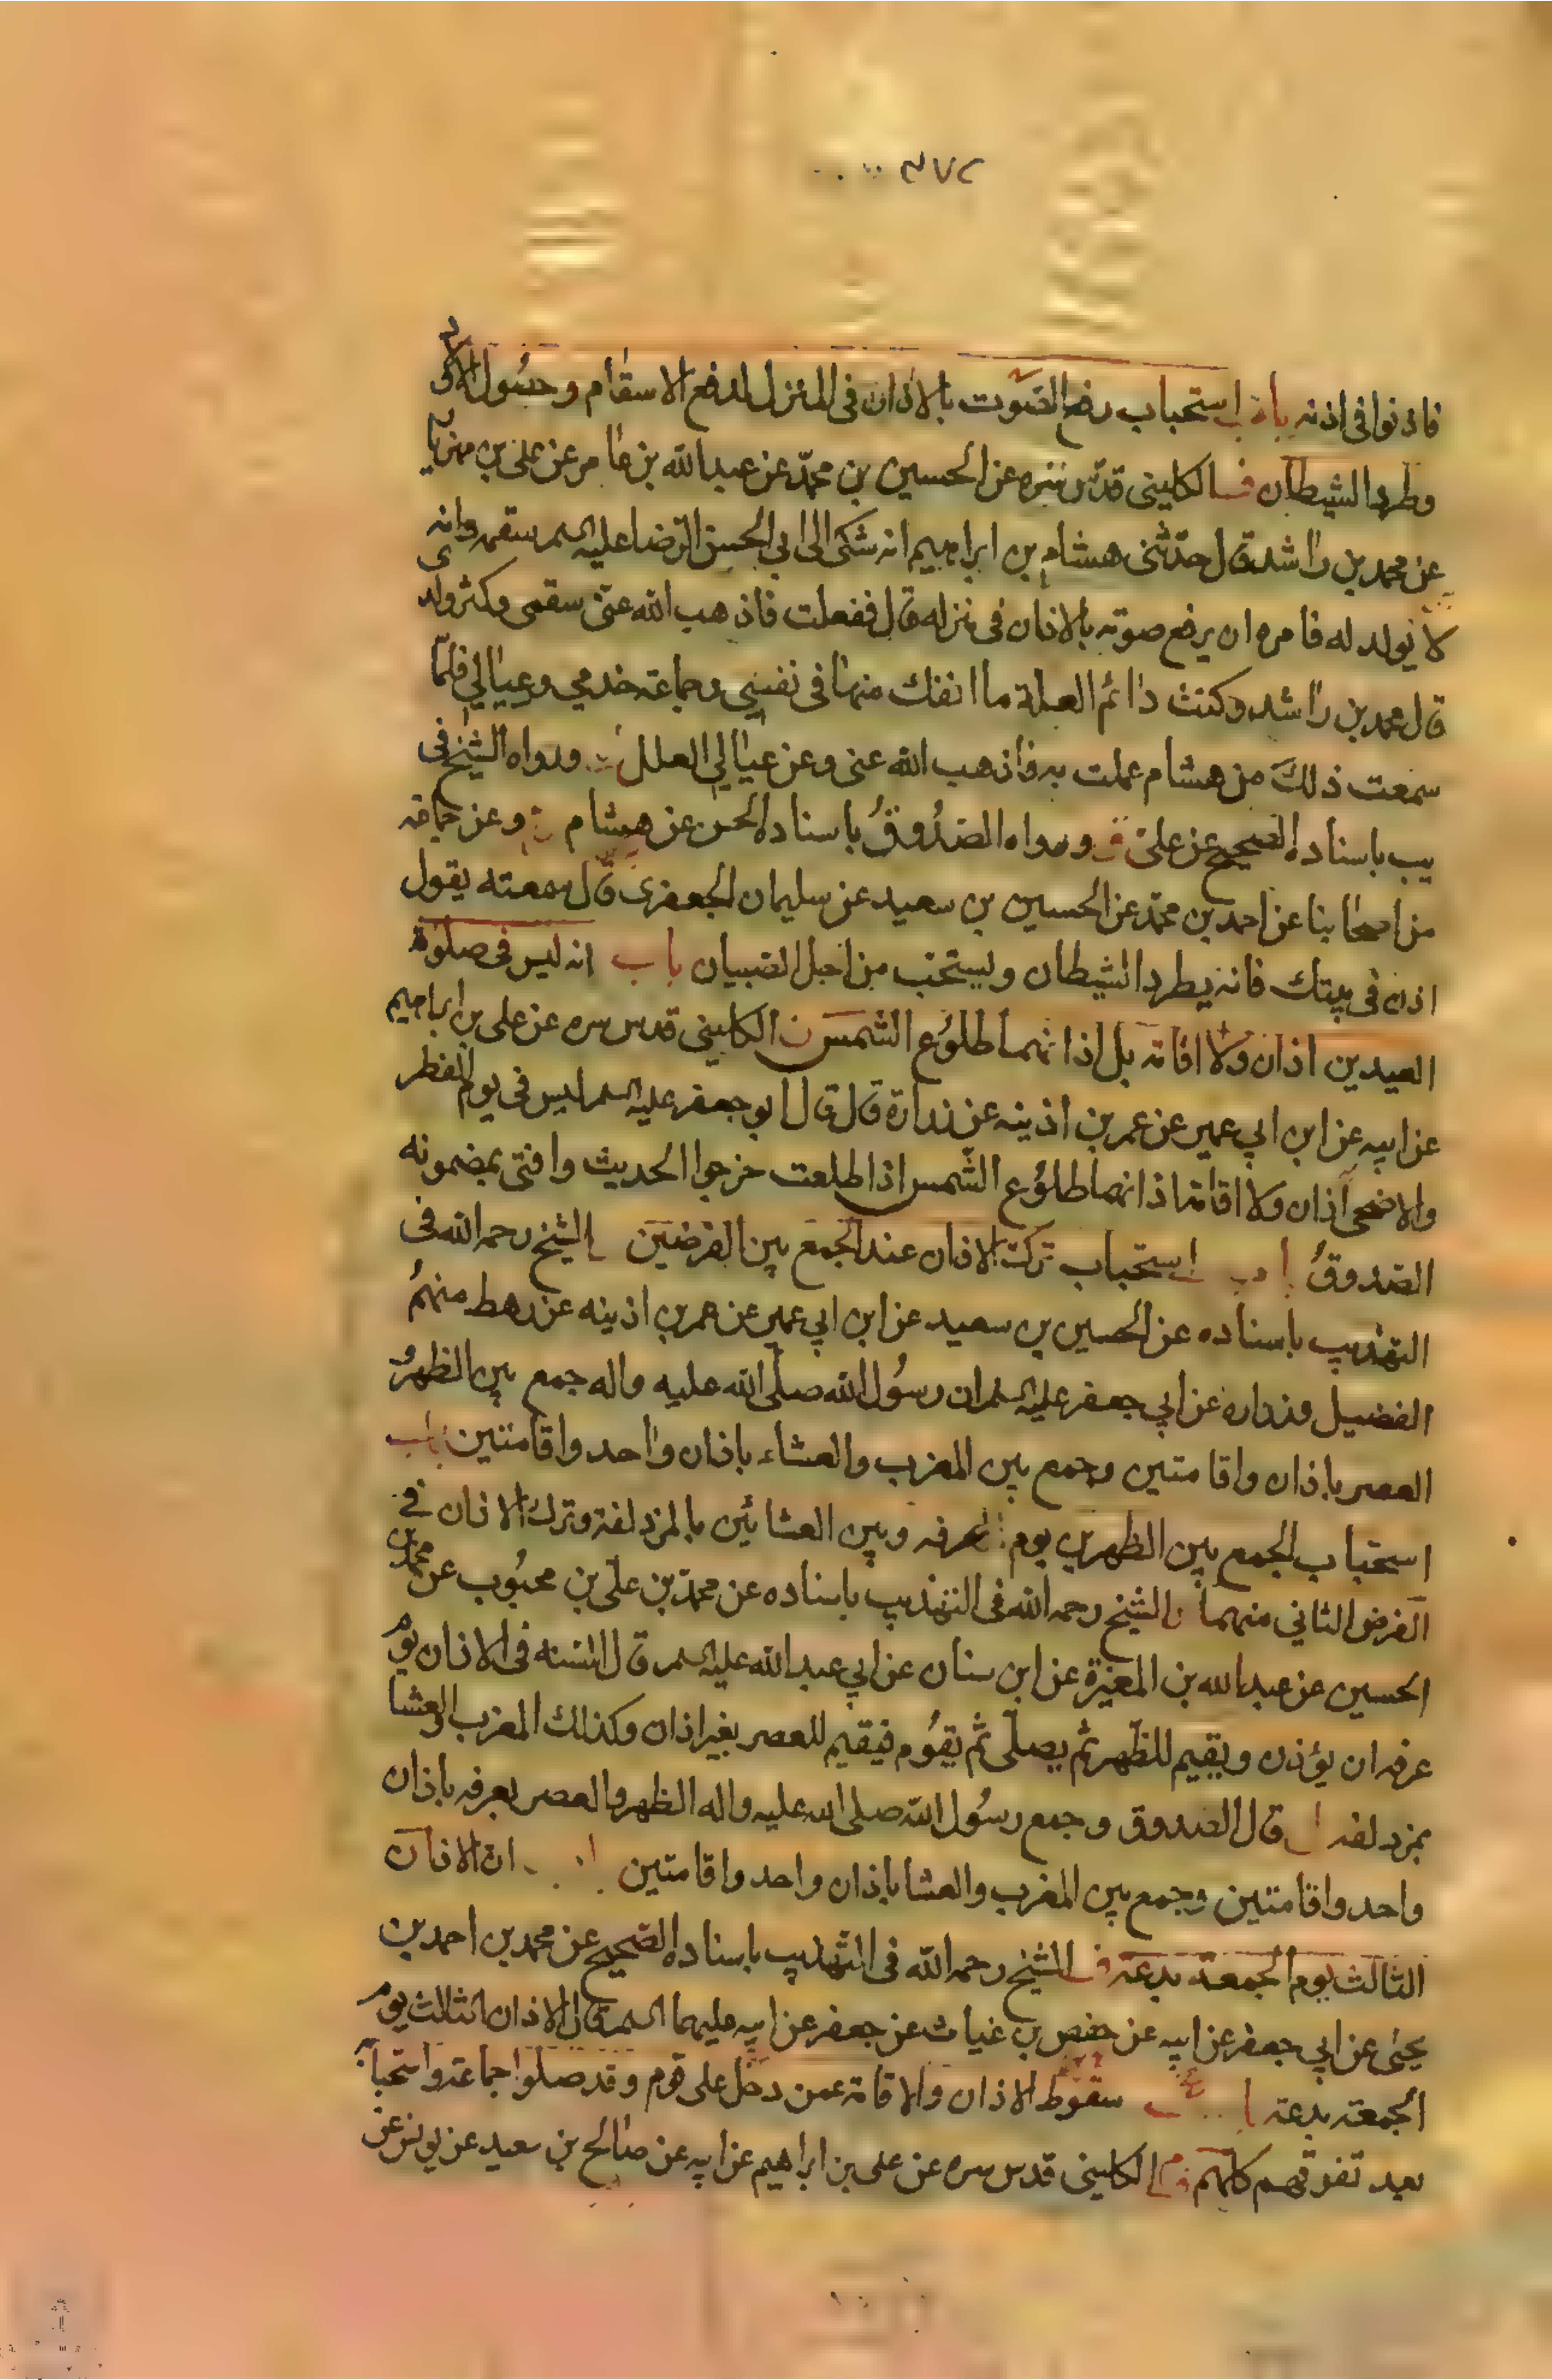 ٣٧٢
فاذنوا فى اذنه باب استحباب رفع الصّوت بالاذان فى المنزل لدفع الاسقام وحصُول الاولاد
وطرد الشيطان الكلينى قدّس سره عن الحسين بن محمّد عن عبدالله بن عامر عن على بن مهزيار
عن محمد بن راشد قال حدّثنى هشام بن ابراهيم انه شكى الى ابى الحسن الرّضا عليه السلم سقمه وانه
لا يولد له فامره ان يرفع صوته بالاذان فى منزله قال ففعلت فاذهب الله عنّى سقمى وكثر ولدى
قال محمد بن راشد وكنت دائم العلة ما انفك منها فى نفسى وجماعة خدمى وعيالي فلمّا
سمعت ذلك من هشام عملت به فاذهب الله عنى وعن عيالي العلل ورواه الشيخ فى
يب باسناده الصحيح عن علىّ ورواه الصّدُوقُ باسناده الحسن عن هشام وعن جماعة
من اصحابنا عن احمد بن محمّد عن الحسين بن سعيد عن سليمان الجعفرى قال سمعته يقول
اذن فى بيتك فانه يطرد الشيطان ويستحب من اجل الصبيان باب انه ليس فى صلوة
العيدين اذان ولا اقامة بل اذانهما طلوُع الشمس الكلينى قدس سره عن على بن ابراهيم
عن ابيه عن ابن ابي عمير عن عمر بن اذينه عن زرارة قال قال ابو جعفر عليه السلم ليس فى يوم الفطر
والاضحى اذان ولا اقامة اذانهما طلوُع الشّمس اذا طلعت خرجوا الحديث وافتى بمضمونه
الصّدوقُ باب استحباب ترك الاذان عند الجمع بين الفرضين الشيخ رحمه الله فى
التهذيب باسناده عن الحسين بن سعيد عن ابن ابي عمير عن عمر بن اذينه عن رهط منهمُ
الفضيل وزرارة عن ابي جعفر عليه السلم ان رسُول الله صلّى الله عليه واله جمع بين الظهر و
العصر باذان واقامتين وجمع بين المغرب والعشاء باذان واحد واقامتين باب
استحباب الجمع بين الظهرين يوم عرفه وبين العشائين بالمزدلفة وترك الاذان في
الفرض الثاني منهما الشيخ رحمه الله فى التهذيب باسناده عن محمّد بن علىّ بن محبُوب عن محمد بن
الحسين عن عبدالله بن المغيرة عن ابن سنان عن ابي عبدالله عليه السلم قال السنه فى الاذان يوم
عرفه ان يؤذن ويقيم للظهر ثم يصلّى ثم يقوُم فيقيم للعصر بغير اذان وكذلك المغرب والعشا
بمزدلفه قال الصدوق وجمع رسُول الله صلى الله عليه واله الظهر والعصر بعرفه باذان
واحد واقامتين وجمع بين المغرب والعشا باذان واحد واقامتين ان الاذان
الثالث يوم الجمعة بدعة الشيخ رحمه الله فى التهذيب باسناده الصّحيح عن محمد بن احمد بن
يحيى عن ابي جعفر عن ابيه عن حفص بن غياث عن جعفر عن ابيه عليهما السلم قال الاذان الثالث يوم
الجمعة بدعة سقوُط الاذان والاقامة عمن دخل على قوم وقد صلوا جماعة واستحبابه
بعد تفرقهم كلّهم الكلينى قدس سره عن على بن ابراهيم عن ابيه عن صالح بن سعيد عن يونس عن